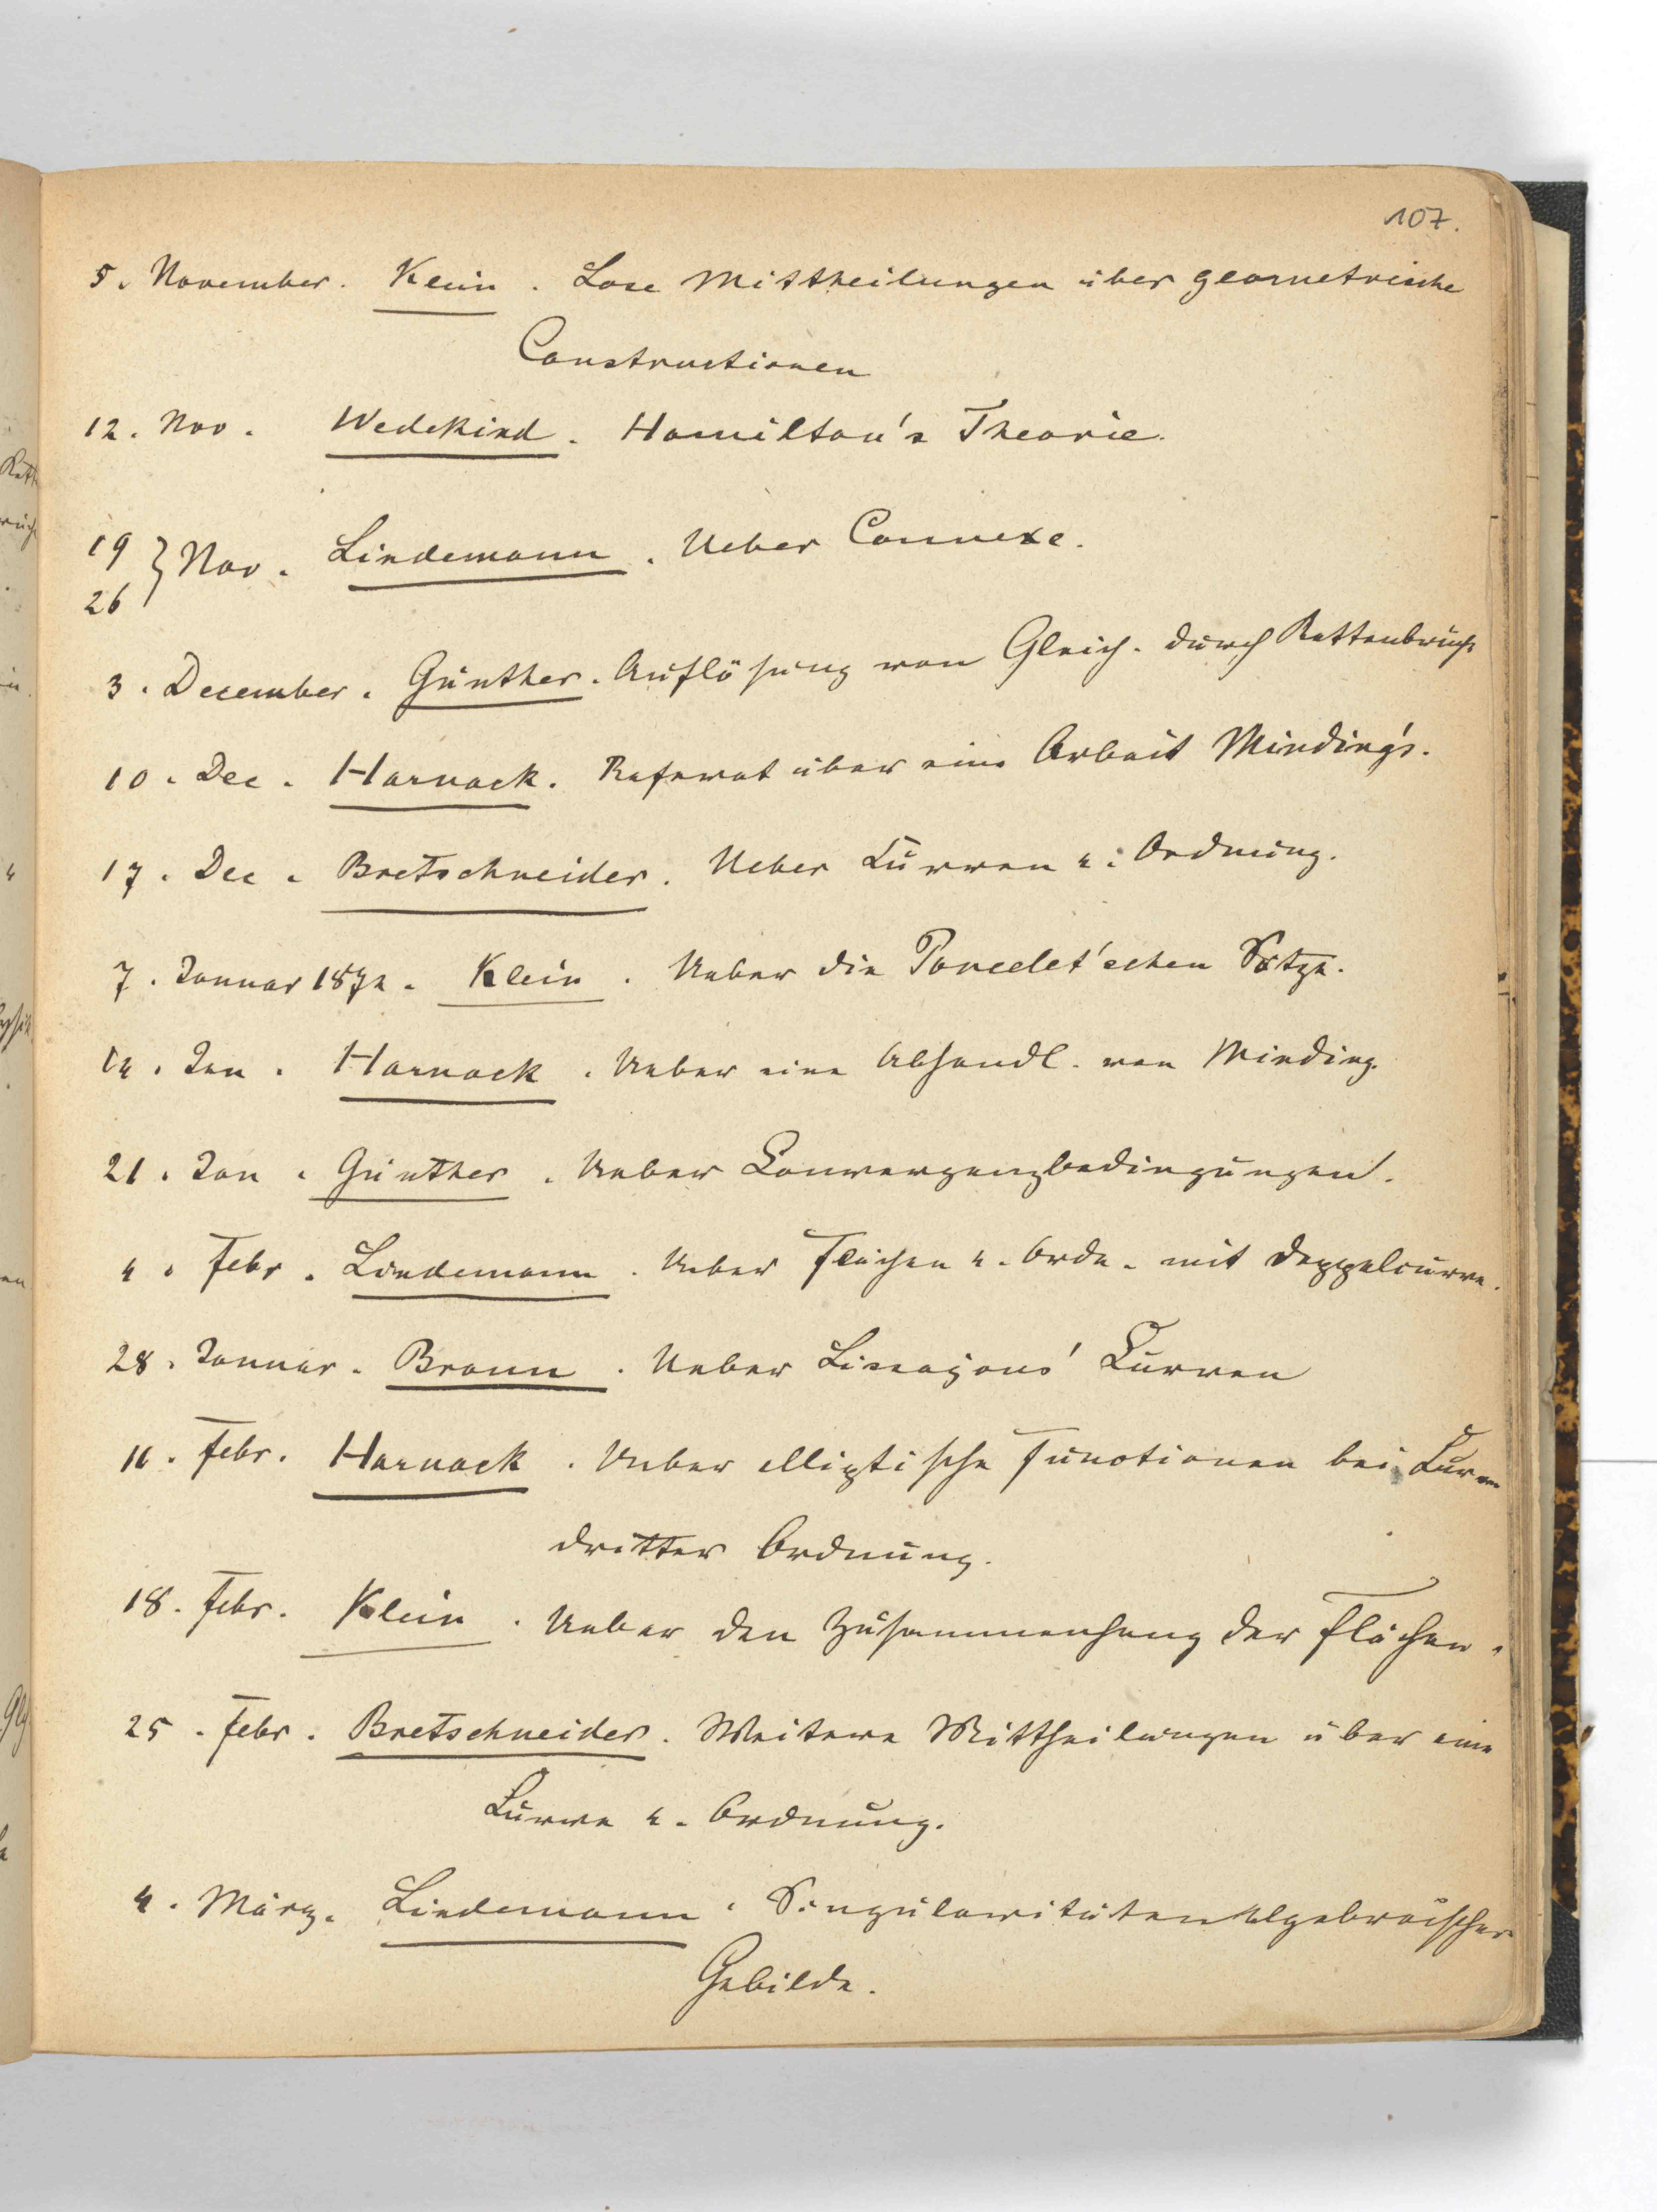 107.
5. November. Klein. Lose Mittheilungen über geometrische
Constructionen
12. Nov. Wedekind. Hamilton's Theorie.
19
26 } Nov. Lindemann. Ueber Connexe.
3. December. Günther. Auflösung von Gleich. durch Kettenbrüche
10. Dec. Harnack. Referat über eine Arbeit Minding's.
17. Dec. Bretschneider. Ueber Curven 4. Ordnung.
7. Januar 1874. Klein. Ueber die Poncelet'schen Sätze.
14. Jan. Harnack. Ueber eine Abhandl. von Minding.
21. Jan. Günther. Ueber Convergenzbedingungen.
4. Febr. Lindemann. Ueber Flächen 4. Ordn. mit Doppelcurve.
28. Januar. Braun. Ueber Lissajous' Curven
11. Febr. Harnack. Ueber elliptische Functionen bei Curven
dritter Ordnung.
18. Febr. Klein. Ueber den Zusammenhang der Flächen.
25. Febr. Bretschneider. Weitere Mittheilungen über eine
Curve 4. Ordnung.
4. März. Lindemann. Singularitäten algebraischer
Gebilde.